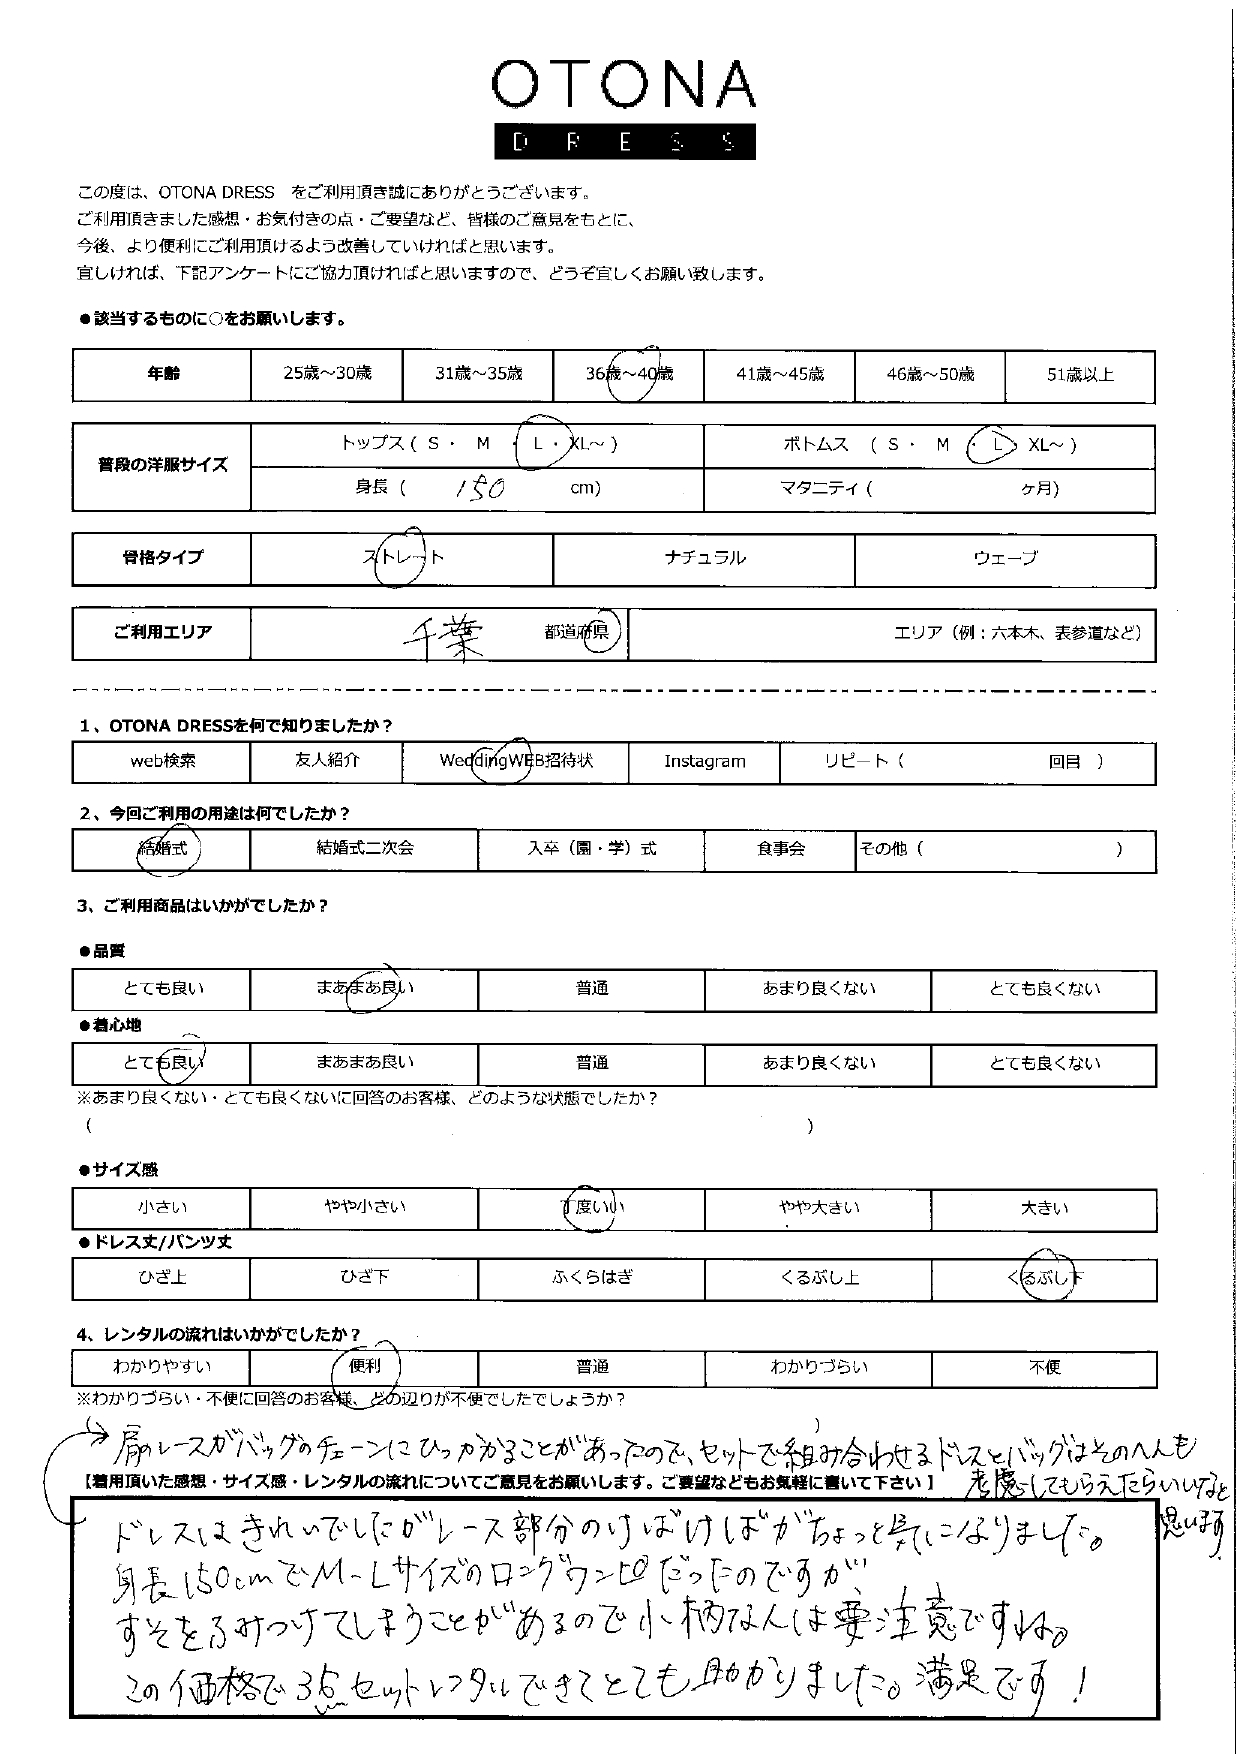 OTONA
DRESS
この度は、OTONA DRESS をご利用頂き誠にありがとうございます。
ご利用頂きました感想・お気付きの点・ご要望など、皆様のご意見をもとに、
今後、より便利にご利用頂けるよう改善していければと思います。
宜しければ、下記アンケートにご協力頂ければと思いますので、どうぞ宜しくお願い致します。
●該当するものに○をお願いします。
年齢 25歳～30歳 31歳～35歳 36歳～40歳 41歳～45歳 46歳～50歳 51歳以上
普段の洋服サイズ トップス ( S ・ M ・ L ・ XL～ ) ボトムス ( S ・ M ・ L ・ XL～ )
身長 ( 150 cm) マタニティ ( ヶ月)
骨格タイプ ストレート ナチュラル ウェーブ
ご利用エリア 千葉 都道府県 エリア（例：六本木、表参道など）
1、OTONA DRESSを何で知りましたか？
web検索 友人紹介 WeddingWEB招待状 Instagram リピート ( 回目 )
2、今回ご利用の用途は何でしたか？
結婚式 結婚式二次会 入卒（園・学）式 食事会 その他 ( )
3、ご利用商品はいかがでしたか？
●品質
とても良い まあまあ良い 普通 あまり良くない とても良くない
●着心地
とても良い まあまあ良い 普通 あまり良くない とても良くない
※あまり良くない・とても良くないに回答のお客様、どのような状態でしたか？
( )
●サイズ感
小さい やや小さい 丁度いい やや大きい 大きい
●ドレス丈/パンツ丈
ひざ上 ひざ下 ふくらはぎ くるぶし上 くるぶし下
4、レンタルの流れはいかがでしたか？
わかりやすい 便利 普通 わかりづらい 不便
※わかりづらい・不便に回答のお客様、どの辺りが不便でしたでしょうか？
( )
肩のレースがバッグのチェーンにひっかかることがあったので、セットで組み合わせるドレスとバッグはそのへんも
考慮してもらえたらいいなと
思います
【着用頂いた感想・サイズ感・レンタルの流れについてご意見をお願いします。ご要望などもお気軽に書いて下さい】
ドレスはきれいでしたがレース部分のけばけばがちょっと気になりました。
身長150cmでM-Lサイズのロングワンピだったのですが、
すそをふみつけてしまうことがあるので小柄な人は要注意ですね。
この価格で3点セットレンタルできてとても助かりました。満足です！